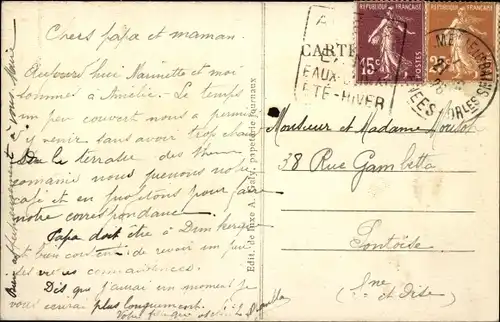 Chers papa et maman.
Aujourd'hui Marinette et moi
sommes à Amélie. Le temps
un peu couvert nous a permis
d'y venir sans avoir trop chaud
De la terrasse des
nous prenons notre
café et en profitons pour faire
notre correspondance.
Papa doit être à Dunkerque
et bien content de revoir un peu
ses vieilles connaissances.
Dès que j'aurai un moment je
vous écrirai plus longuement.
Votre fille
affectueusement à vous
Edit. de luxe A. papeterie journaux
CARTE
15c
POSTES
EAUX-
ÉTÉ-HIVER
Monsieur et Madame
38 Rue Gambetta
Pontoise
Sne
et Oise